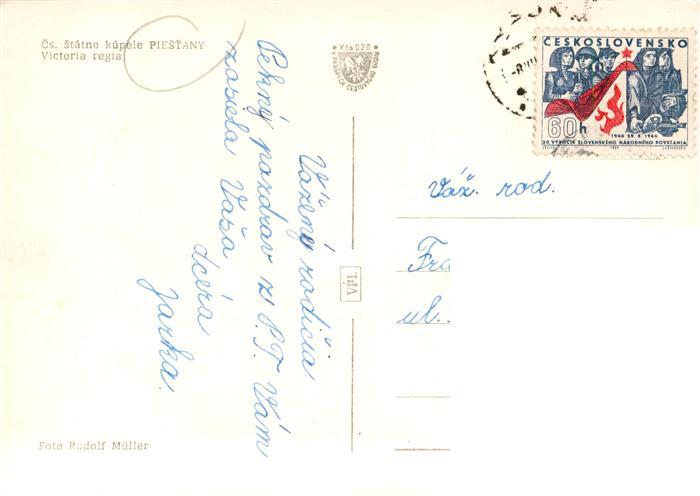 Čs. štátne kúpele PIEŠŤANY
Victoria regia
Kčs 0,20
ČESKOSLOVENSKO
60h
1944 29.8 1964
20. VÝROČIE SLOVENSKÉHO NÁRODNÉHO POVSTANIA
Váž. rod.
Fra
ul.
Vážený rodičia
Pekný pozdrav z P.T. Vám
zasiela Vaša
dcéra
Jarka.
VPL
Foto Rudolf Müller